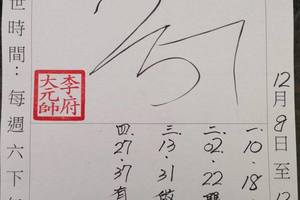 12月9日至12
一.10.18
二.02.22
三.13.31
四.27.37有
李府
大元帥
世時間：每週六下